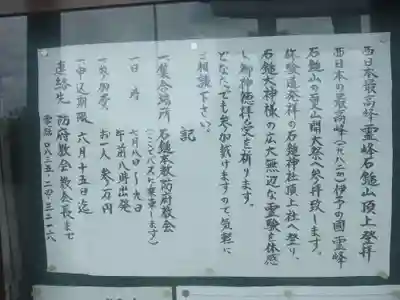 西日本最高峰霊峰石鎚山頂上登拝
西日本の最高峰(一九八二m)伊予の國霊峰
石鎚山の夏山開大祭へ参拝致します。
修験道発祥の石鎚神社頂上社へ登り、
石鎚大神様の広大無辺な霊験を体感
し御神徳拝受を祈ります。
どなたでも参加戴けますので、気軽に
ご相談下さい。
記
一、集合場所 石鎚本教防府教会
(ここでバスに乗車します)
一、日時 七月八日~九日
午前八時出発
一、参加費 お一人 参万円
一、申込期限 六月十五日迄
連絡先 防府教会教会長まで